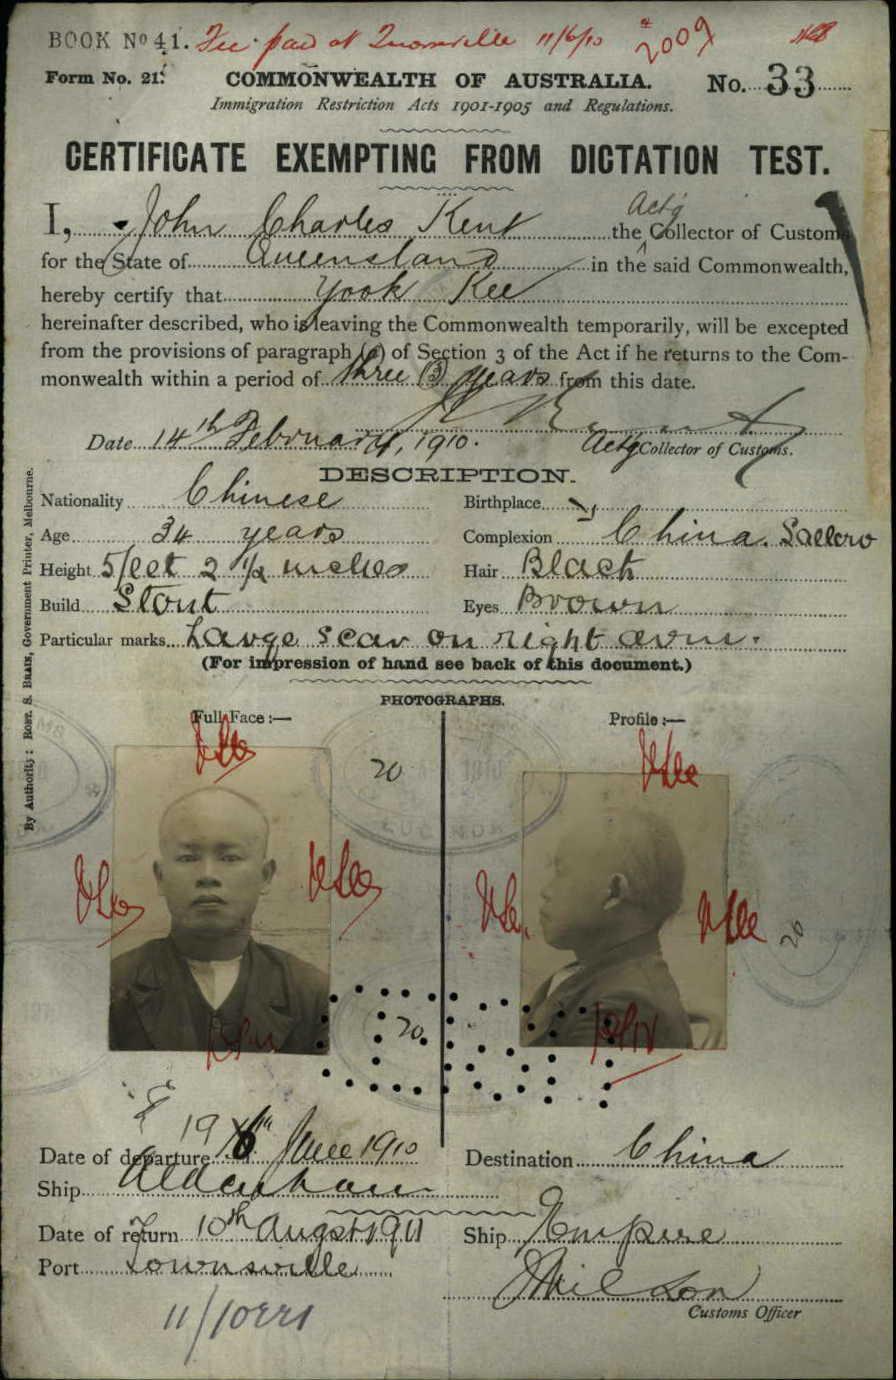 BOOK No 41. Fee paid at Townsville 11/6/10 2009
Form No. 21. COMMONWEALTH OF AUSTRALIA. No. 33
Immigration Restriction Acts 1901-1905 and Regulations.
CERTIFICATE EXEMPTING FROM DICTATION TEST.
I, John Charles Kent the Actg Collector of Customs
for the State of Queensland in the said Commonwealth,
hereby certify that Yook Kee
hereinafter described, who is leaving the Commonwealth temporarily, will be excepted
from the provisions of paragraph (a) of Section 3 of the Act if he returns to the Com-
monwealth within a period of three (3) years from this date.
Date 14th February, 1910. Actg Collector of Customs.
DESCRIPTION.
Nationality Chinese Birthplace
Age 34 years Complexion China. Sallow
Height 5 feet 2 1/2 inches Hair Black
Build Stout Eyes Brown
Particular marks Large scar on right arm.
(For impression of hand see back of this document.)
PHOTOGRAPHS.
Full Face :— Profile :—
20
20
20
Date of departure 19 June 1910 Destination China
Ship Aldenham
Date of return 10th Augst 1911 Ship Empire
Port Townsville
Customs Officer
By Authority: ROBT. S. BRAIN, Government Printer, Melbourne.